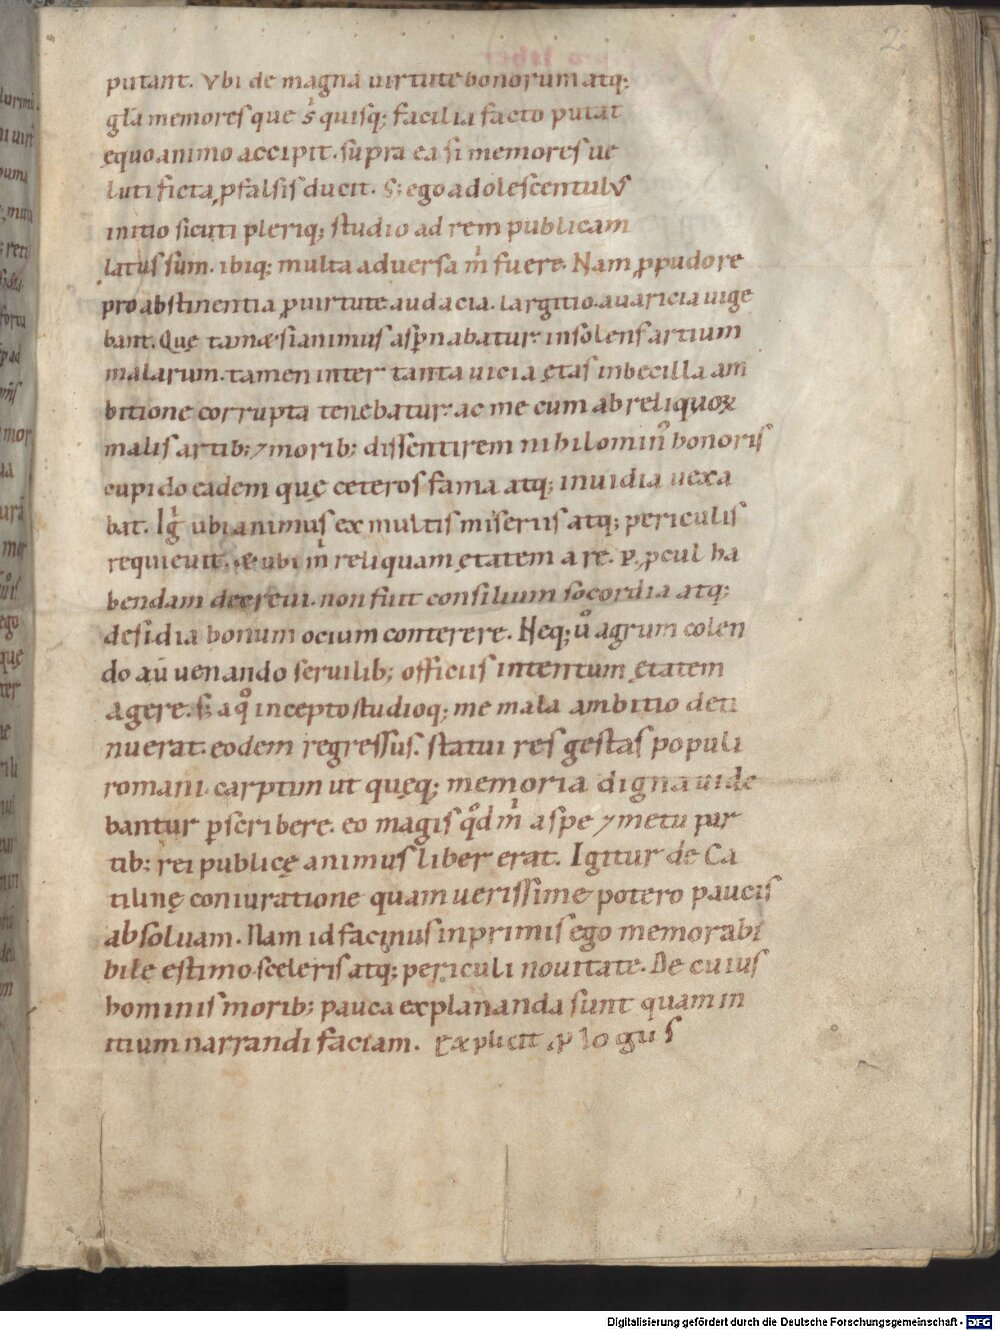 2
putant. Vbi de magna uirtute bonorum atq;
gła memores que s quisq; facilia facto putat
ęquo animo accipit. supra ea si memores ue
luti ficta ꝓ falsis ducit. S; ego adolescentulus
initio sicuti pleriq; studio ad rem publicam
latus sum. ibiq; multa aduersa m fuere. Nam ꝓ pudore
pro abstinentia ꝓ uirtute. audacia. largitio. auaricia uige
bant. Quę tamæsi animus aspnabatur. insolens artium
malarum. tamen inter tanta uicia ętas inbecilla am
bitione corrupta tenebatur. ac me cum ab reliquoꝝ
malis artib; ⁊ morib; dissentirem nihilomin' honoris
cupido eadem quę ceteros fama atq; inuidia uexa
bat. Ig ubi animus ex multis miseriis atq; periculis
requieuit. & ubi m reliquam ętatem a re. p. ꝓcul ha
bendam decreui. non fuit consilium socordia atq;
desidia bonum ocium conterere. Neq; ů agrum colen
do aū uenando seruilib; officiis intentum ętatem
agere. s; a qͦ incepto studioq; me mala ambitio deti
nuerat. eodem regressus. statui res gestas populi
romani. carptim ut quęq; memoria digna uide
bantur ꝑscribere. eo magis qͦd m a spe ⁊ metu par
tib; rei publicę animus liber erat. Igitur de Ca
tilinę coniuratione quam uerissime potero paucis
absoluam. Nam id facinus inprimis ego memorabi
bile estimo sceleris atq; periculi nouitate. De cuius
hominis morib; pauca explananda sunt quam in
itium narrandi faciam. Explicit ꝓlogus
Digitalisierung gefördert durch die Deutsche Forschungsgemeinschaft - DFG